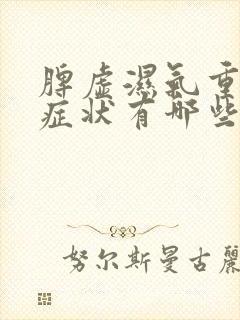 脾虚濕氣重
症状有哪些
努尔斯曼古麗